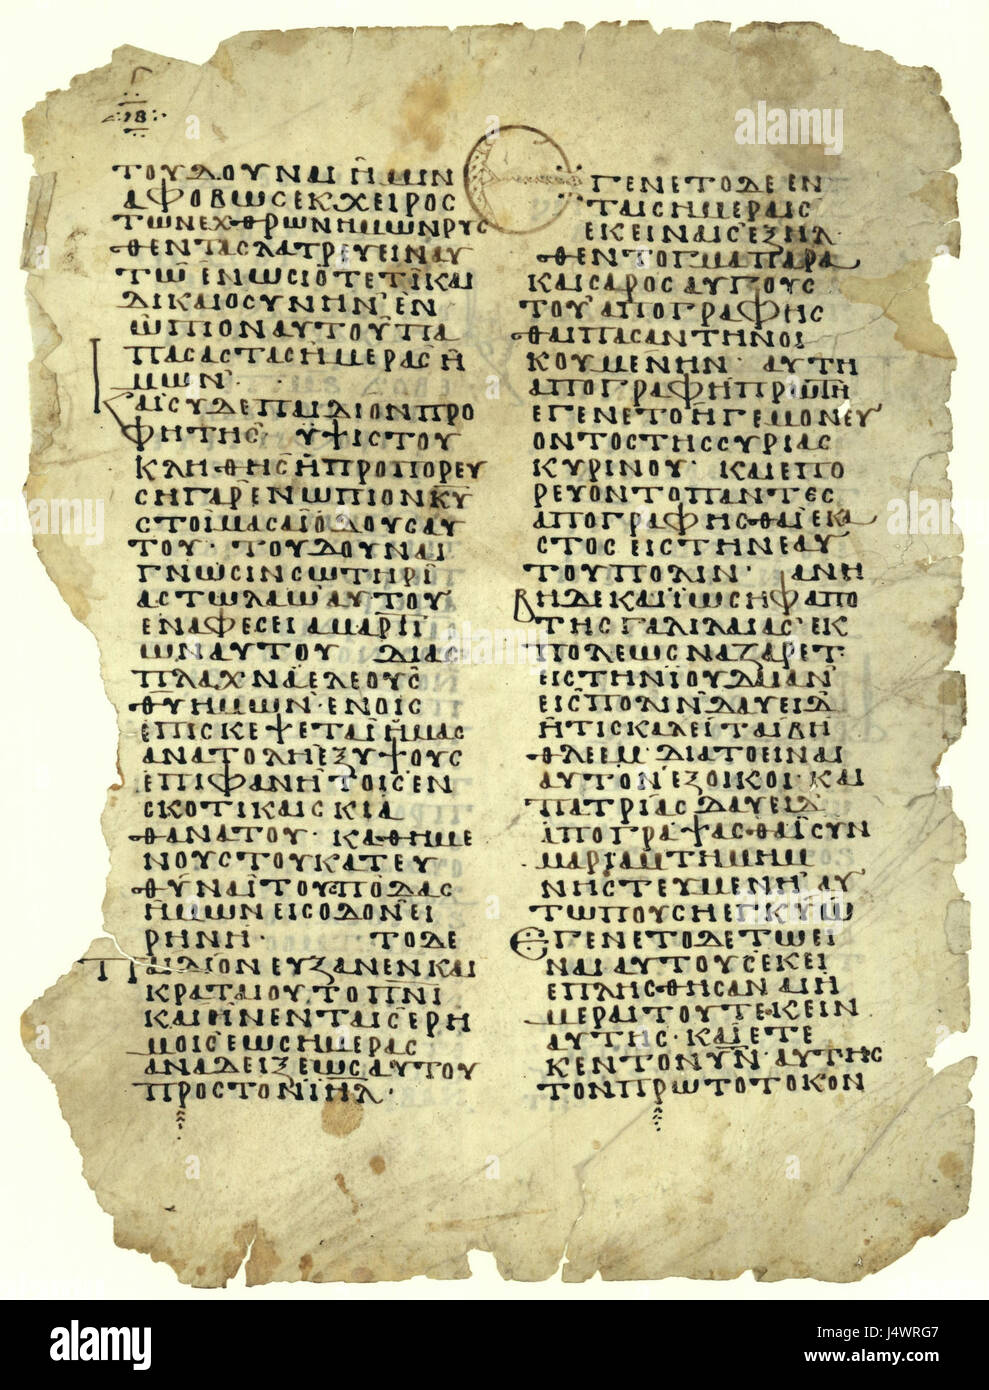 ΤΟΥΔΟΥΝΑΙΗΜΙΝ
ΑΦΟΒΩΣΕΚΧΕΙΡΟΣ
ΤΩΝΕΧΘΡΩΝΗΜΩΝΡΥΣ
ΘΕΝΤΑΣΛΑΤΡΕΥΕΙΝΑΥ
ΤΩ ΕΝΩΣΙΟΤΕΤΙΚΑΙ
ΔΙΚΑΙΟΣΥΝΗΝ ΕΝ
ΩΠΙΟΝΑΥΤΟΥΠΑ
ΠΑΣΑΣΤΑΣΗΜΕΡΑΣΗ
ΜΩΝ·
ΚΑΙΣΥΔΕΠΑΙΔΙΟΝΠΡΟ
ΦΗΤΗΣ ΥΨΙΣΤΟΥ
ΚΛΗΘΗΣΗΠΡΟΠΟΡΕΥ
ΣΗΓΑΡΕΝΩΠΙΟΝΚΥ
ΣΤΟΙΜΑΣΑΙΟΔΟΥΣΑΥ
ΤΟΥ· ΤΟΥΔΟΥΝΑΙ
ΓΝΩΣΙΝΣΩΤΗΡΙ
ΑΣΤΩΛΑΩΑΥΤΟΥ
ΕΝΑΦΕΣΕΙΑΜΑΡΤΙ
ΩΝΑΥΤΟΥ ΔΙΑΣ
ΠΛΑΧΝΑΕΛΕΟΥΣ
ΘΥΗΜΩΝ·ΕΝΟΙΣ
ΕΠΙΣΚΕΨΕΤΑΙΗΜΑΣ
ΑΝΑΤΟΛΗΕΞΥΨΟΥΣ
ΕΠΙΦΑΝΗΤΟΙΣΕΝ
ΣΚΟΤΙΚΑΙΣΚΙΑ
ΘΑΝΑΤΟΥ· ΚΑΘΗΜΕ
ΝΟΥΣΤΟΥΚΑΤΕΥ
ΘΥΝΑΙΤΟΥΣΠΟΔΑΣ
ΗΜΩΝΕΙΣΟΔΟΝΕΙ
ΡΗΝΗ· ΤΟΔΕ
ΠΑΙΔΙΟΝΕΥΞΑΝΕΝΚΑΙ
ΚΡΑΤΑΙΟΥΤΟΠΝΙ
ΚΑΙΗΝΕΝΤΑΙΣΕΡΗ
ΜΟΙΣΕΩΣΗΜΕΡΑΣ
ΑΝΑΔΕΙΞΕΩΣΑΥΤΟΥ
ΠΡΟΣΤΟΝΙΗΛ·
ΓΕΝΕΤΟΔΕΕΝ
ΤΑΙΣΗΜΕΡΑΙΣ
ΕΚΕΙΝΑΙΣΕΞΗΛ
ΘΕΝΤΟΓΜΑΠΑΡΑ
ΚΑΙΣΑΡΟΣΑΥΓΟΥΣ
ΤΟΥΑΠΟΓΡΑΦΗΣ
ΘΑΙΠΑΣΑΝΤΗΝΟΙ
ΚΟΥΜΕΝΗΝ· ΑΥΤΗ
ΑΠΟΓΡΑΦΗΠΡΩΤΗ
ΕΓΕΝΕΤΟΗΓΕΜΟΝΕΥ
ΟΝΤΟΣΤΗΣΣΥΡΙΑΣ
ΚΥΡΙΝΟΥ· ΚΑΙΕΠΟ
ΡΕΥΟΝΤΟΠΑΝΤΕΣ
ΑΠΟΓΡΑΦΗΣΘΑΙΕΚΑ
ΣΤΟΣΕΙΣΤΗΝΕΑΥ
ΤΟΥΠΟΛΙΝ· ΑΝΗ
ΒΗΔΕΚΑΙΙΩΣΗΦΑΠΟ
ΤΗΣΓΑΛΙΛΑΙΑΣΕΚ
ΠΟΛΕΩΣΝΑΖΑΡΕΤ·
ΕΙΣΤΗΝΙΟΥΔΑΙΑΝ
ΕΙΣΠΟΛΙΝΔΑΥΕΙΔ
ΗΤΙΣΚΑΛΕΙΤΑΙΒΗ
ΘΛΕΕΜ·ΔΙΑΤΟΕΙΝΑΙ
ΑΥΤΟΝΕΞΟΙΚΟΙ·ΚΑΙ
ΠΑΤΡΙΑΣΔΑΥΕΙΔ
ΑΠΟΓΡΑΨΑΣΘΑΙΣΥΝ
ΜΑΡΙΑΜΤΗΜΗΜ
ΝΗΣΤΕΥΜΕΝΗΑΥ
ΤΩΠΟΥΣΗΕΓΚΥΩ
ΕΓΕΝΕΤΟΔΕΤΩΕΙ
ΝΑΙΑΥΤΟΥΣΕΚΕΙ
ΕΠΛΗΣΘΗΣΑΝΑΙΗ
ΜΕΡΑΙΤΟΥΤΕΚΕΙΝ
ΑΥΤΗΣ·ΚΑΙΕΤΕ
ΚΕΝΤΟΝΥΝ·ΑΥΤΗΣ
ΤΟΝΠΡΩΤΟΤΟΚΟΝ
alamy stock photo
J4WRG7
www.alamy.com